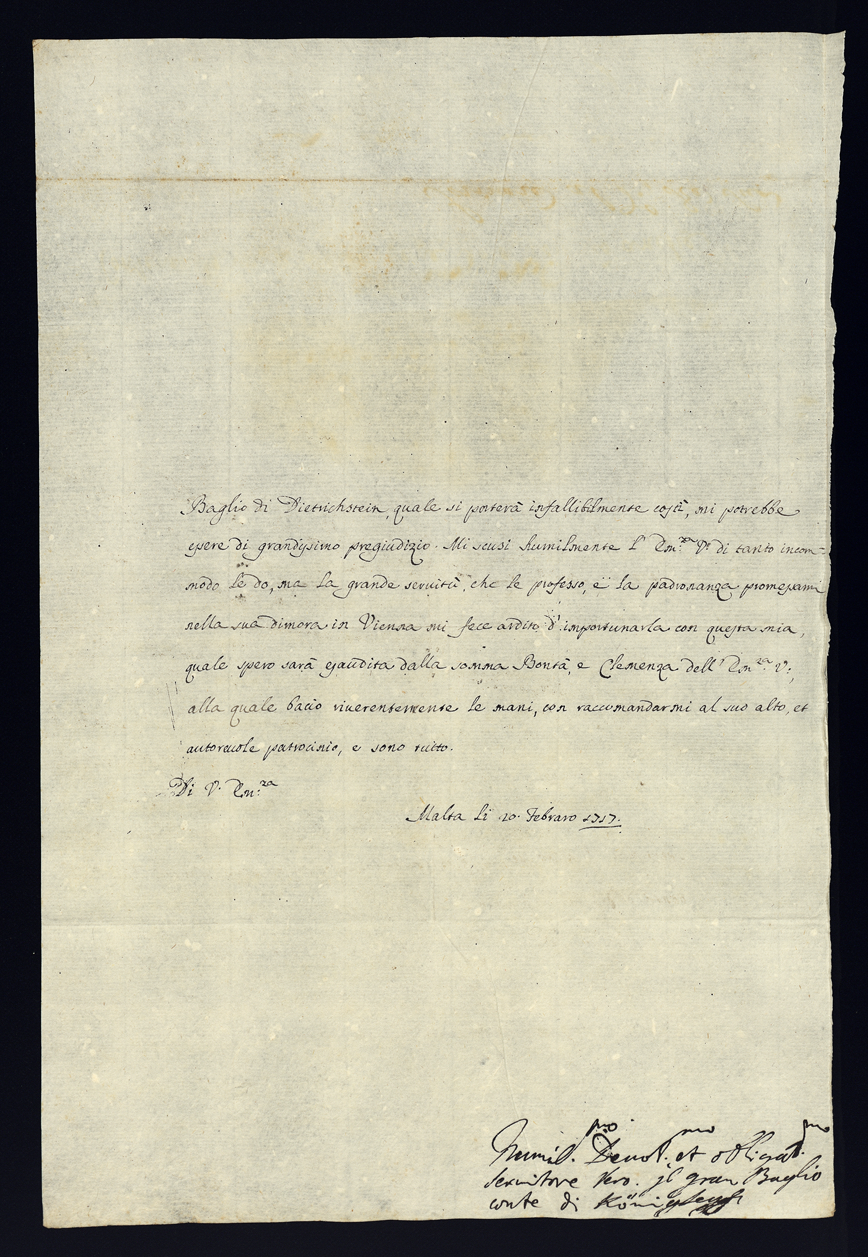 Baglio di Dietrichstein, quale si porterà infallibilmente costì, mi potrebbe
essere di grandissimo pregiudizio. Mi scusi humilmente l' Em.za V. di tanto incom=
modo le do, ma la grande servitù, che le professo, è la padronanza promessami
nella sua dimora in Vienna mi fece ardito d' importunarla con questa mia,
quale spero sarà esaudita dalla somma Bontà, e Clemenza dell' Em.za V:,
alla quale bacio riverentemente le mani, con raccomandarmi al suo alto, et
autorevole patrocinio, e sono tutto.
Di V. Em.za
Malta li 20. Febraro 1717.
Humil.mo Devot.mo et obligat.mo
servitore vero. jl gran Baglio
conte di Königsegg